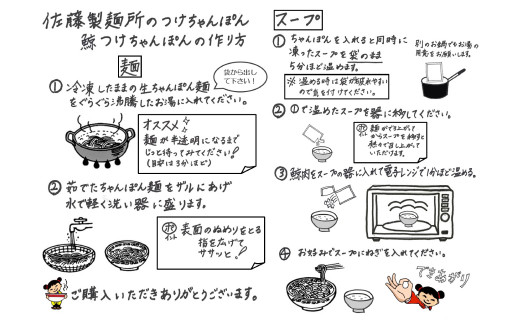 佐藤製麺所のつけちゃんぽん
鯨つけちゃんぽんの作り方
麺
① 冷凍したままの生ちゃんぽん麺を
ぐらぐら沸騰したお湯に入れてください。
袋から出して
下さい!
オススメ
麺が半透明になるまで
じっと待ってみてください!
(目安は3分ほど)
② 茹でたちゃんぽん麺をザルにあげ
水で軽く洗い器に盛ります。
ポイント
表面のぬめりをとる
指を広げて
ササッと!
ご購入いただきありがとうございます。
スープ
① ちゃんぽんを入れると同時に
凍ったスープを袋のまま
5分ほど温めます。
※温める時は袋が破れやすい
ので気を付けてください。
別のお鍋でもお湯の
用意をお願いします。
② ①で温めたスープを器に移してください。
ポイント
麺ができ上がって
からスープを移すと
熱々で召し上がって
いただけます。
③ 鯨肉をスープの器に入れて電子レンジで1分ほど温める。
④ お好みでスープにねぎを入れてください。
できあがり